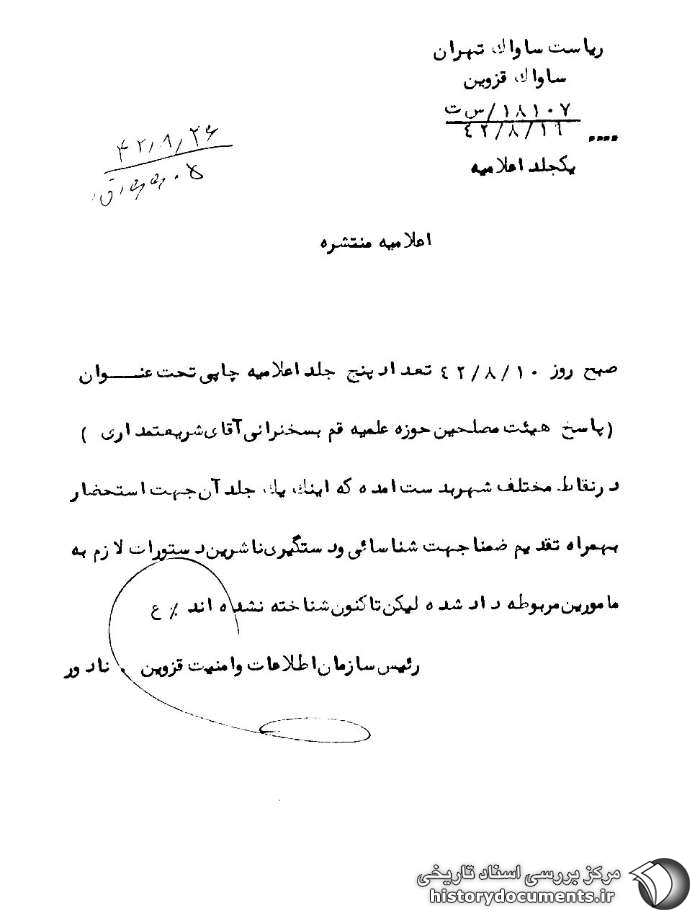 ریاست ساواک تهران
ساواک قزوین
۱۸۱۰۷/س ت
۴۲/۸/۱۱
یکجلد اعلامیه
۴۲/۸/۲۶
اعلامیه منتشره
صبح روز ۴۲/۸/۱۰ تعداد پنج جلد اعلامیه چاپی تحت عنوان
(پاسخ هیئت مصلحین حوزه علمیه قم بسخنرانی آقای شریعتمداری)
در نقاط مختلف شهر بدست آمده که اینک یک جلد آن جهت استحضار
بهمراه تقدیم ضمنا جهت شناسائی و دستگیری ناشرین دستورات لازم به
مامورین مربوطه داده شده لیکن تاکنون شناخته نشده اند ٪ ع
رئیس سازمان اطلاعات و امنیت قزوین . نادور
مرکز بررسی اسناد تاریخی
historydocuments.ir